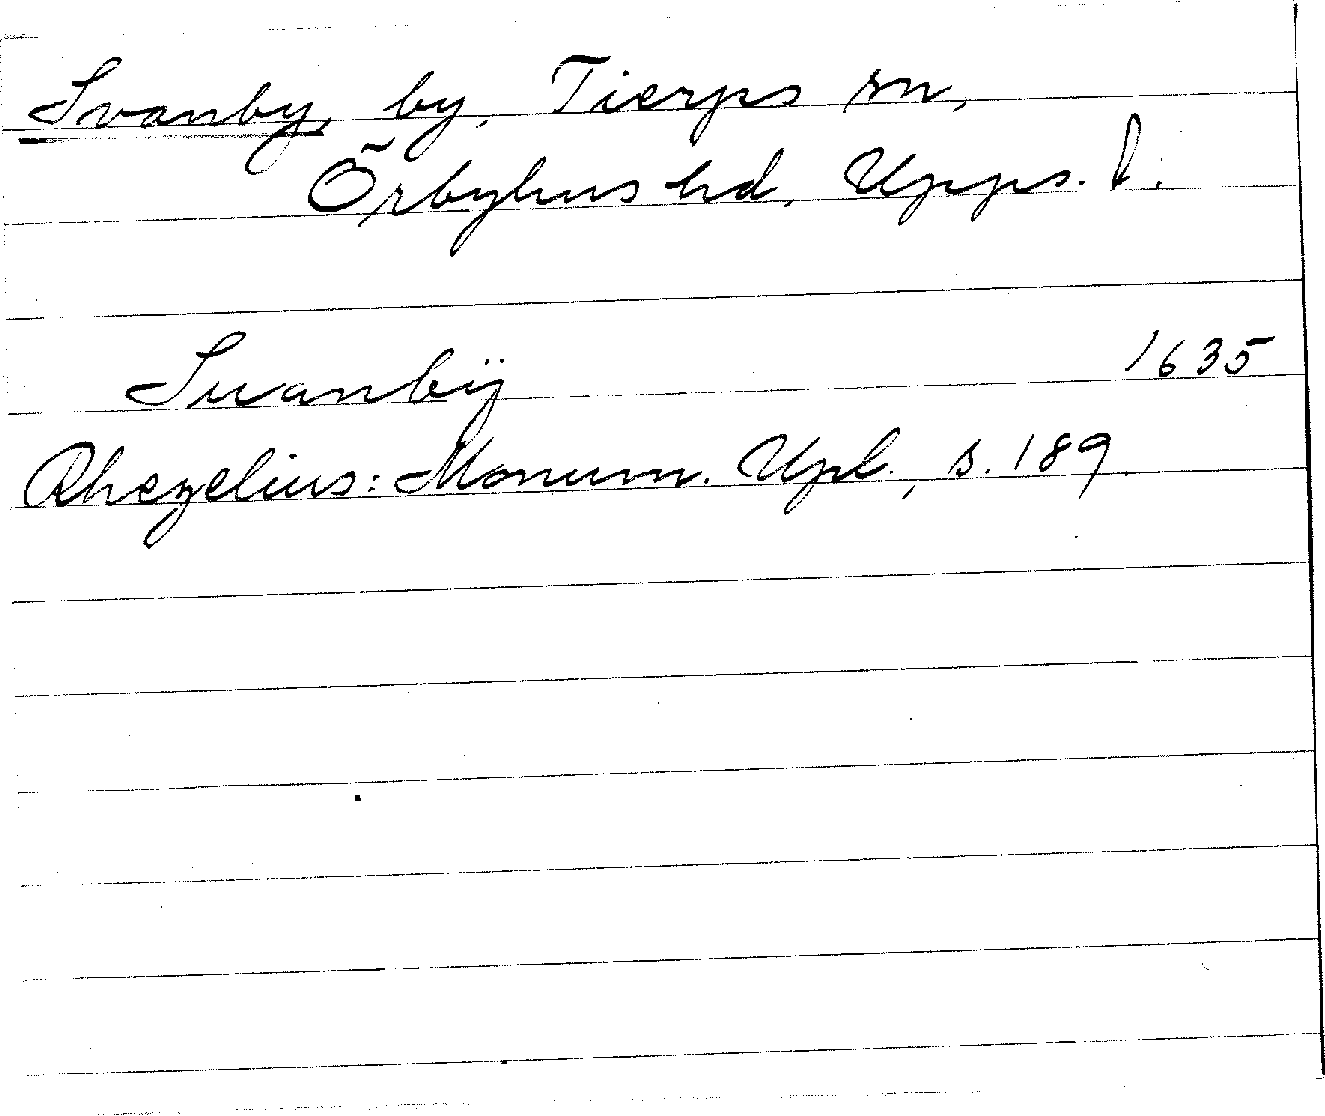 Svanby, by, Tierps sn,
Örbyhus hd, Upps. l.
Suanbÿ 1635
Rhezelius: Monum. Upl., s. 189